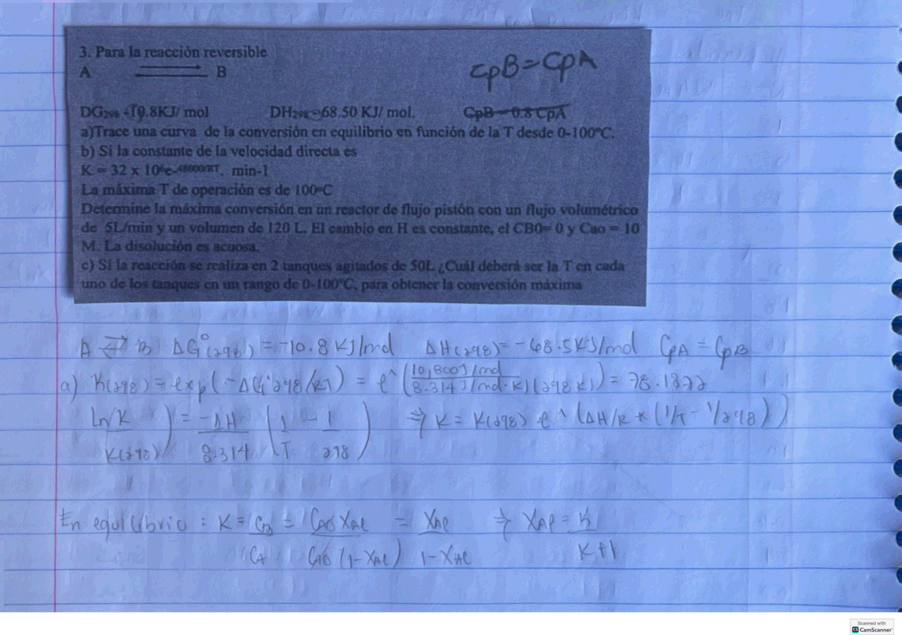 3. Para la reacción reversible
A ⇌ B
CpB = CpA
DG₂₉₈ -10.8KJ/ mol DH₂₉₈ -68.50 KJ/ mol. CpB = 0.8 CpA
a)Trace una curva de la conversión en equilibrio en función de la T desde 0-100ºC.
b) Si la constante de la velocidad directa es
K = 32 x 10⁶e-48000/RT. min-1
La máxima T de operación es de 100ºC
Determine la máxima conversión en un reactor de flujo pistón con un flujo volumétrico
de 5L/min y un volumen de 120 L. El cambio en H es constante, el CB0= 0 y Cao = 10
M. La disolución es acuosa.
c) Si la reacción se realiza en 2 tanques agitados de 50L ¿Cuál deberá ser la T en cada
uno de los tanques en un rango de 0-100ºC, para obtener la conversión máxima
A ⇌ B ΔG°(298) = -10.8 KJ/mol ΔH(298) = -68.5KJ/mol CpA = CpB
a) K(298) = exp(-ΔG°298/RT) = e^(10,800 J/mol / 8.314 J/mol·K)(298K)) = 78.1822
ln(K / K(298)) = -ΔH / 8.314 (1/T - 1/298) ⇒ K = K(298) e^(ΔH/R * (1/T - 1/298))
En equilibrio : K = CB / CA = CA0 XAe / CA0 (1-XAe) = XAe / 1-XAe ⇒ XAe = K / K+1
Scanned with
CS CamScanner